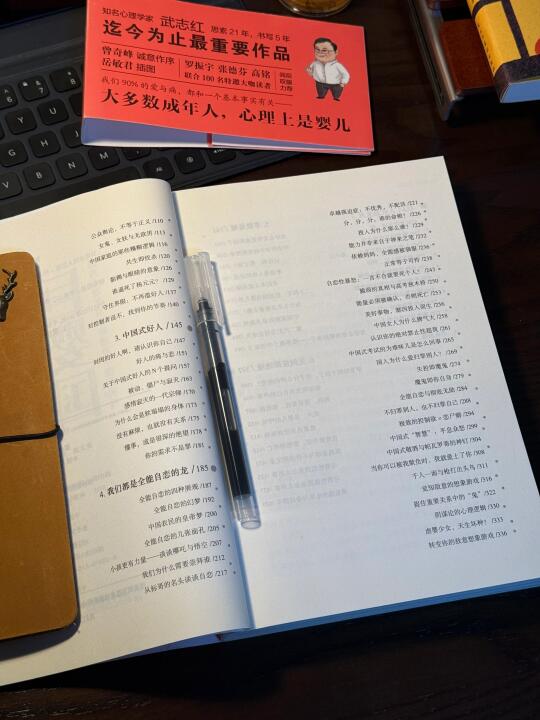 知名心理学家 武志红 思索21年，书写5年
迄今为止最重要作品
曾奇峰 诚意作序
岳敏君 插图
罗振宇 张德芬 高铭
联合100名特邀大咖读者
我们90%的爱与痛，都和一个基本事实有关——
大多数成年人，心理上是婴儿
公众舆论，不等于正义 /110
女鬼、女妖与无欲男 /118
中国家庭的那些糊糊逻辑 /116
共生绞杀者 /126
骷髅与眼睛的意象 /126
谁逼死了杨元元？ /129
守住界限，不再滥好人 /137
对控制者说不，找到你的节奏 /140
3. 中国式好人 /145
封闭的好人啊，请认识你自己 /147
好人的病与悲 /151
关于中国式好人的N个提问 /157
被动、僵尸与寂灭 /163
感情寂灭的一代宗师 /170
为什么会是软塌塌的身体 /173
没有麻烦，也就没有关系 /175
懂事，或是很深的绝望 /178
你的需求不是罪 /181
4. 我们都是全能自恋的龙 /185
全能自恋的四种渊现 /187
全能自恋的幻梦 /192
中国农民的皇帝梦 /200
全能自恋的几张面孔 /205
小孩更有力量——谈谈哪吒与悟空 /207
我们为什么需要崇拜谁 /212
从标哥的名头谈谈自恋 /217
卓越强迫症：不优秀，不配活 /221
分，分，分，谁的命根！ /226
没人为什么那么难？ /229
能力并非来自于神来之笔 /232
依赖妈妈，全能感被锁眼 /236
正常等于可怜 /238
自恋性暴怒：一言不合就要死个人！ /243
能量必须被确认，否则死亡 /253
美好事物，都因敌人而生 /258
中国女人为什么脾气大 /258
认识你的绝对禁止性超我 /261
中国式考试的为难味儿是怎么回事 /265
国人为什么爱归罪别人？ /269
失控即魔鬼 /274
魔鬼即你自身 /279
全能自恋与彻底无助 /284
不归罪别人，也不归罪自己 /288
极致的控制欲=恋尸癖 /294
中国式“智慧”，半是血怒 /299
中国式敬酒与帕瓦罗蒂的神钉 /304
当你可以被我欺负时，我就爱上了你 /308
千人一面与枪打出头鸟 /311
觉知敌意的想象游戏 /316
提住重要关系中的“鬼” /322
阴谋论的心理逻辑 /330
血婴少女，天生坏种？ /333
转变你的敌意想象游戏 /336